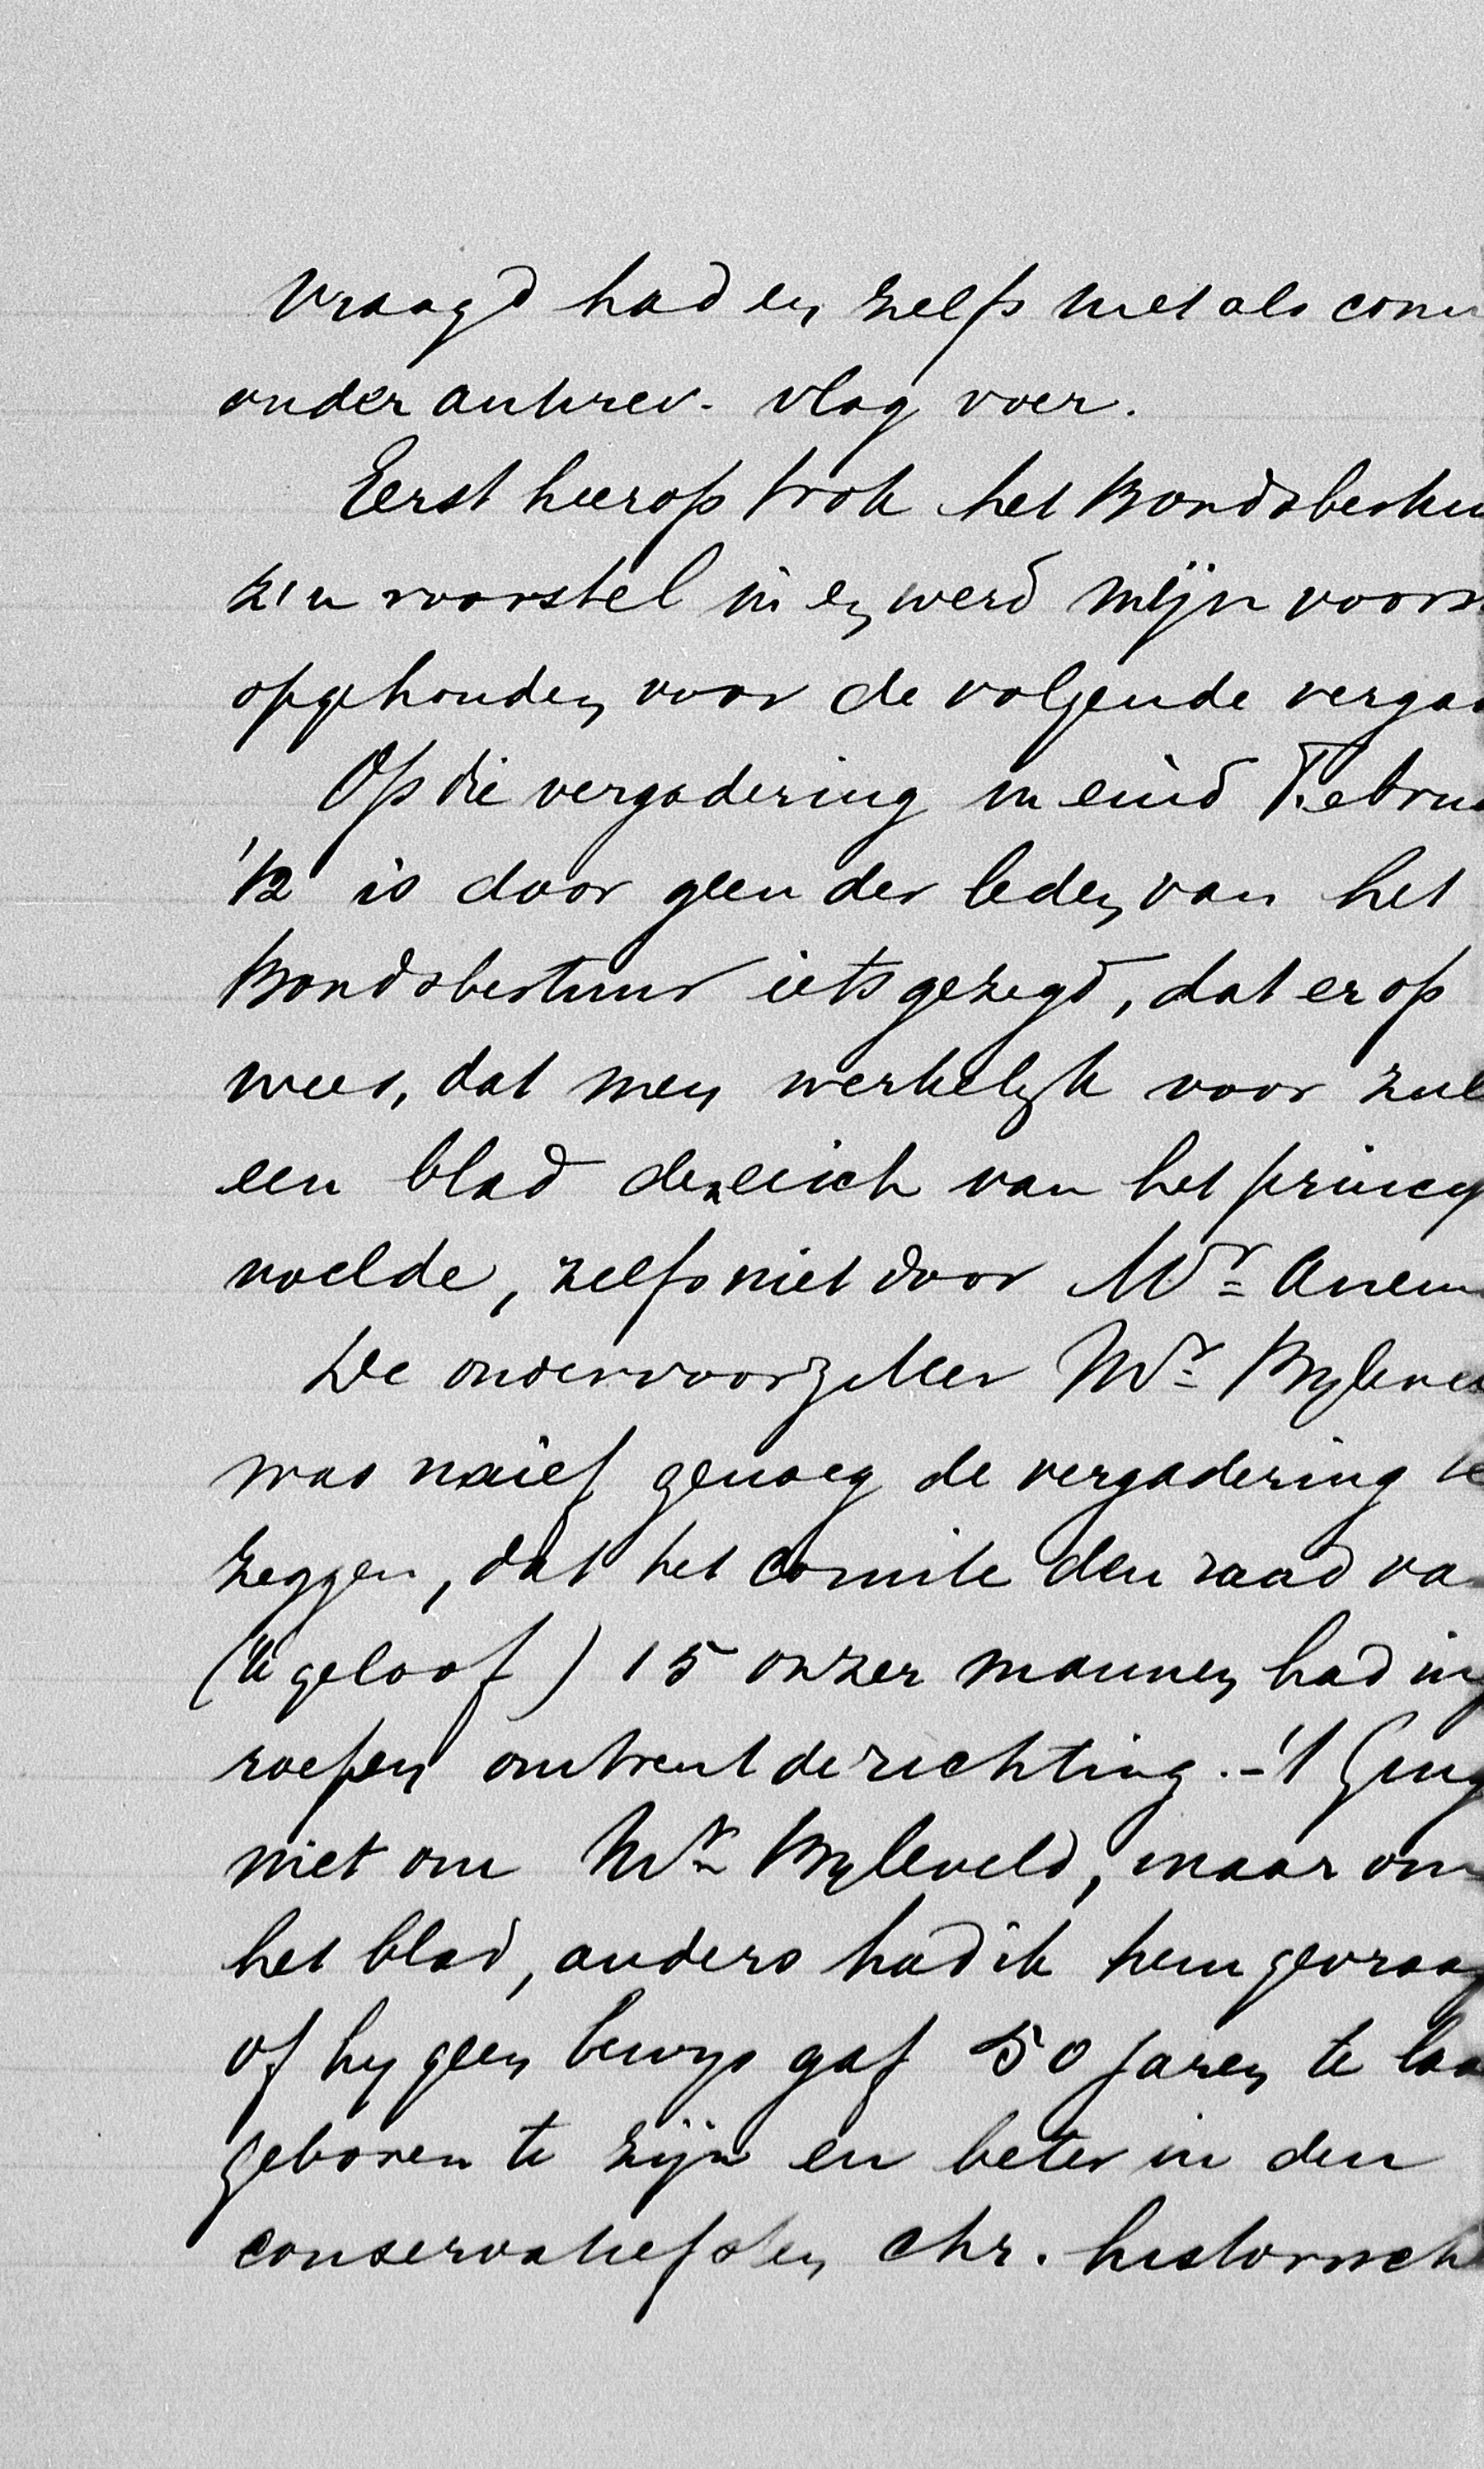 vraagd had en zelfs niet als com
onder antirev. vlag voer.
Eerst hierop trok het Bondsbestu
zi'n voorstel in en werd mijn voors
opgehouden voor de volgende verga
Op die vergadering in eind Februa
'12 is door geen der leden van het
Bondsbestuur iets gezegd, dat er op
wees, dat men werkelijk voor zul
een blad den eisch van het princip
voelde, zelfs niet door Mr. Anem
De ondervoorzitter Mr. Byleve
was naief genoeg de vergadering te
zeggen, dat het comite den raad va
('k geloof) 15 onzer mannen had in
roepen omtrent de richting. - 't Ging
niet om Mr. Byleveld, maar om
het blad, anders had ik hem gevraag
of hy geen bewys gaf 50 jaren te laa
geboren te zijn en beter in den
conservatiefsten chr. historisch